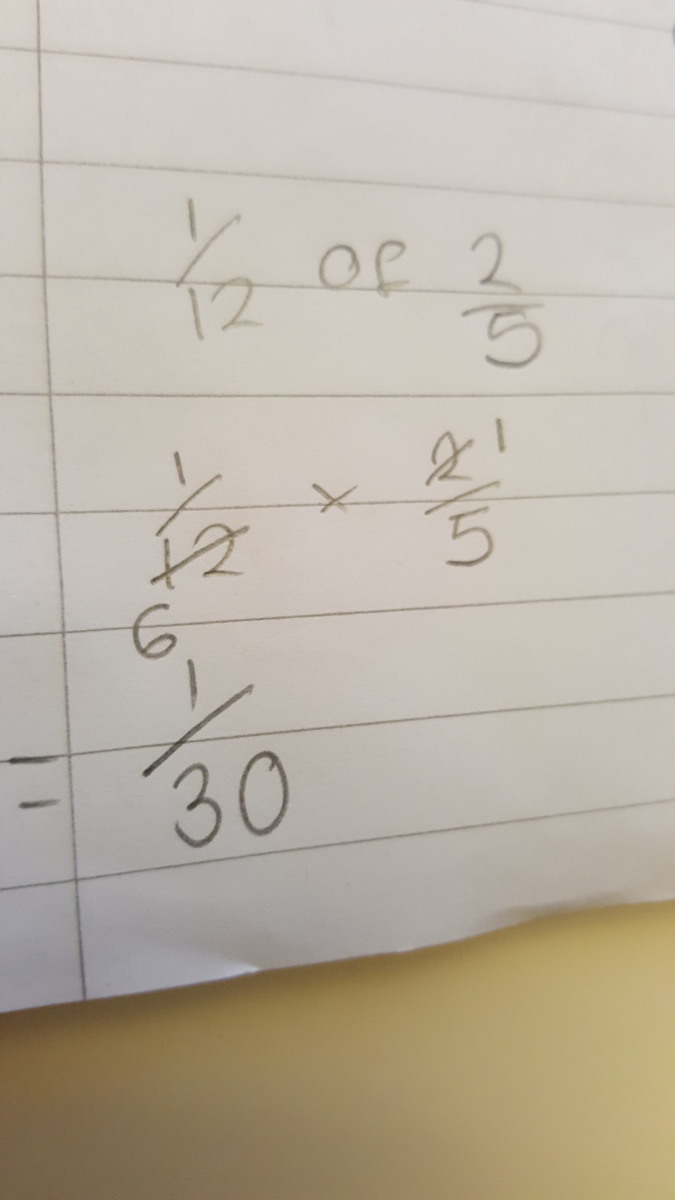 1/12 of 2/5
1/12 × 2/5 1
6
= 1/30